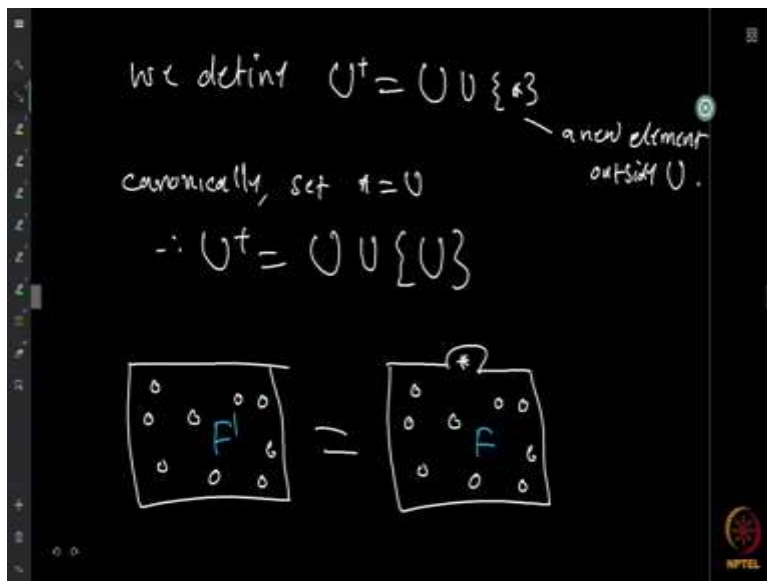 we define U⁺ = U ∪ {*}
a new element
outside U.
canonically, set * = U
∴ U⁺ = U ∪ {U}
*
F' = F
NPTEL